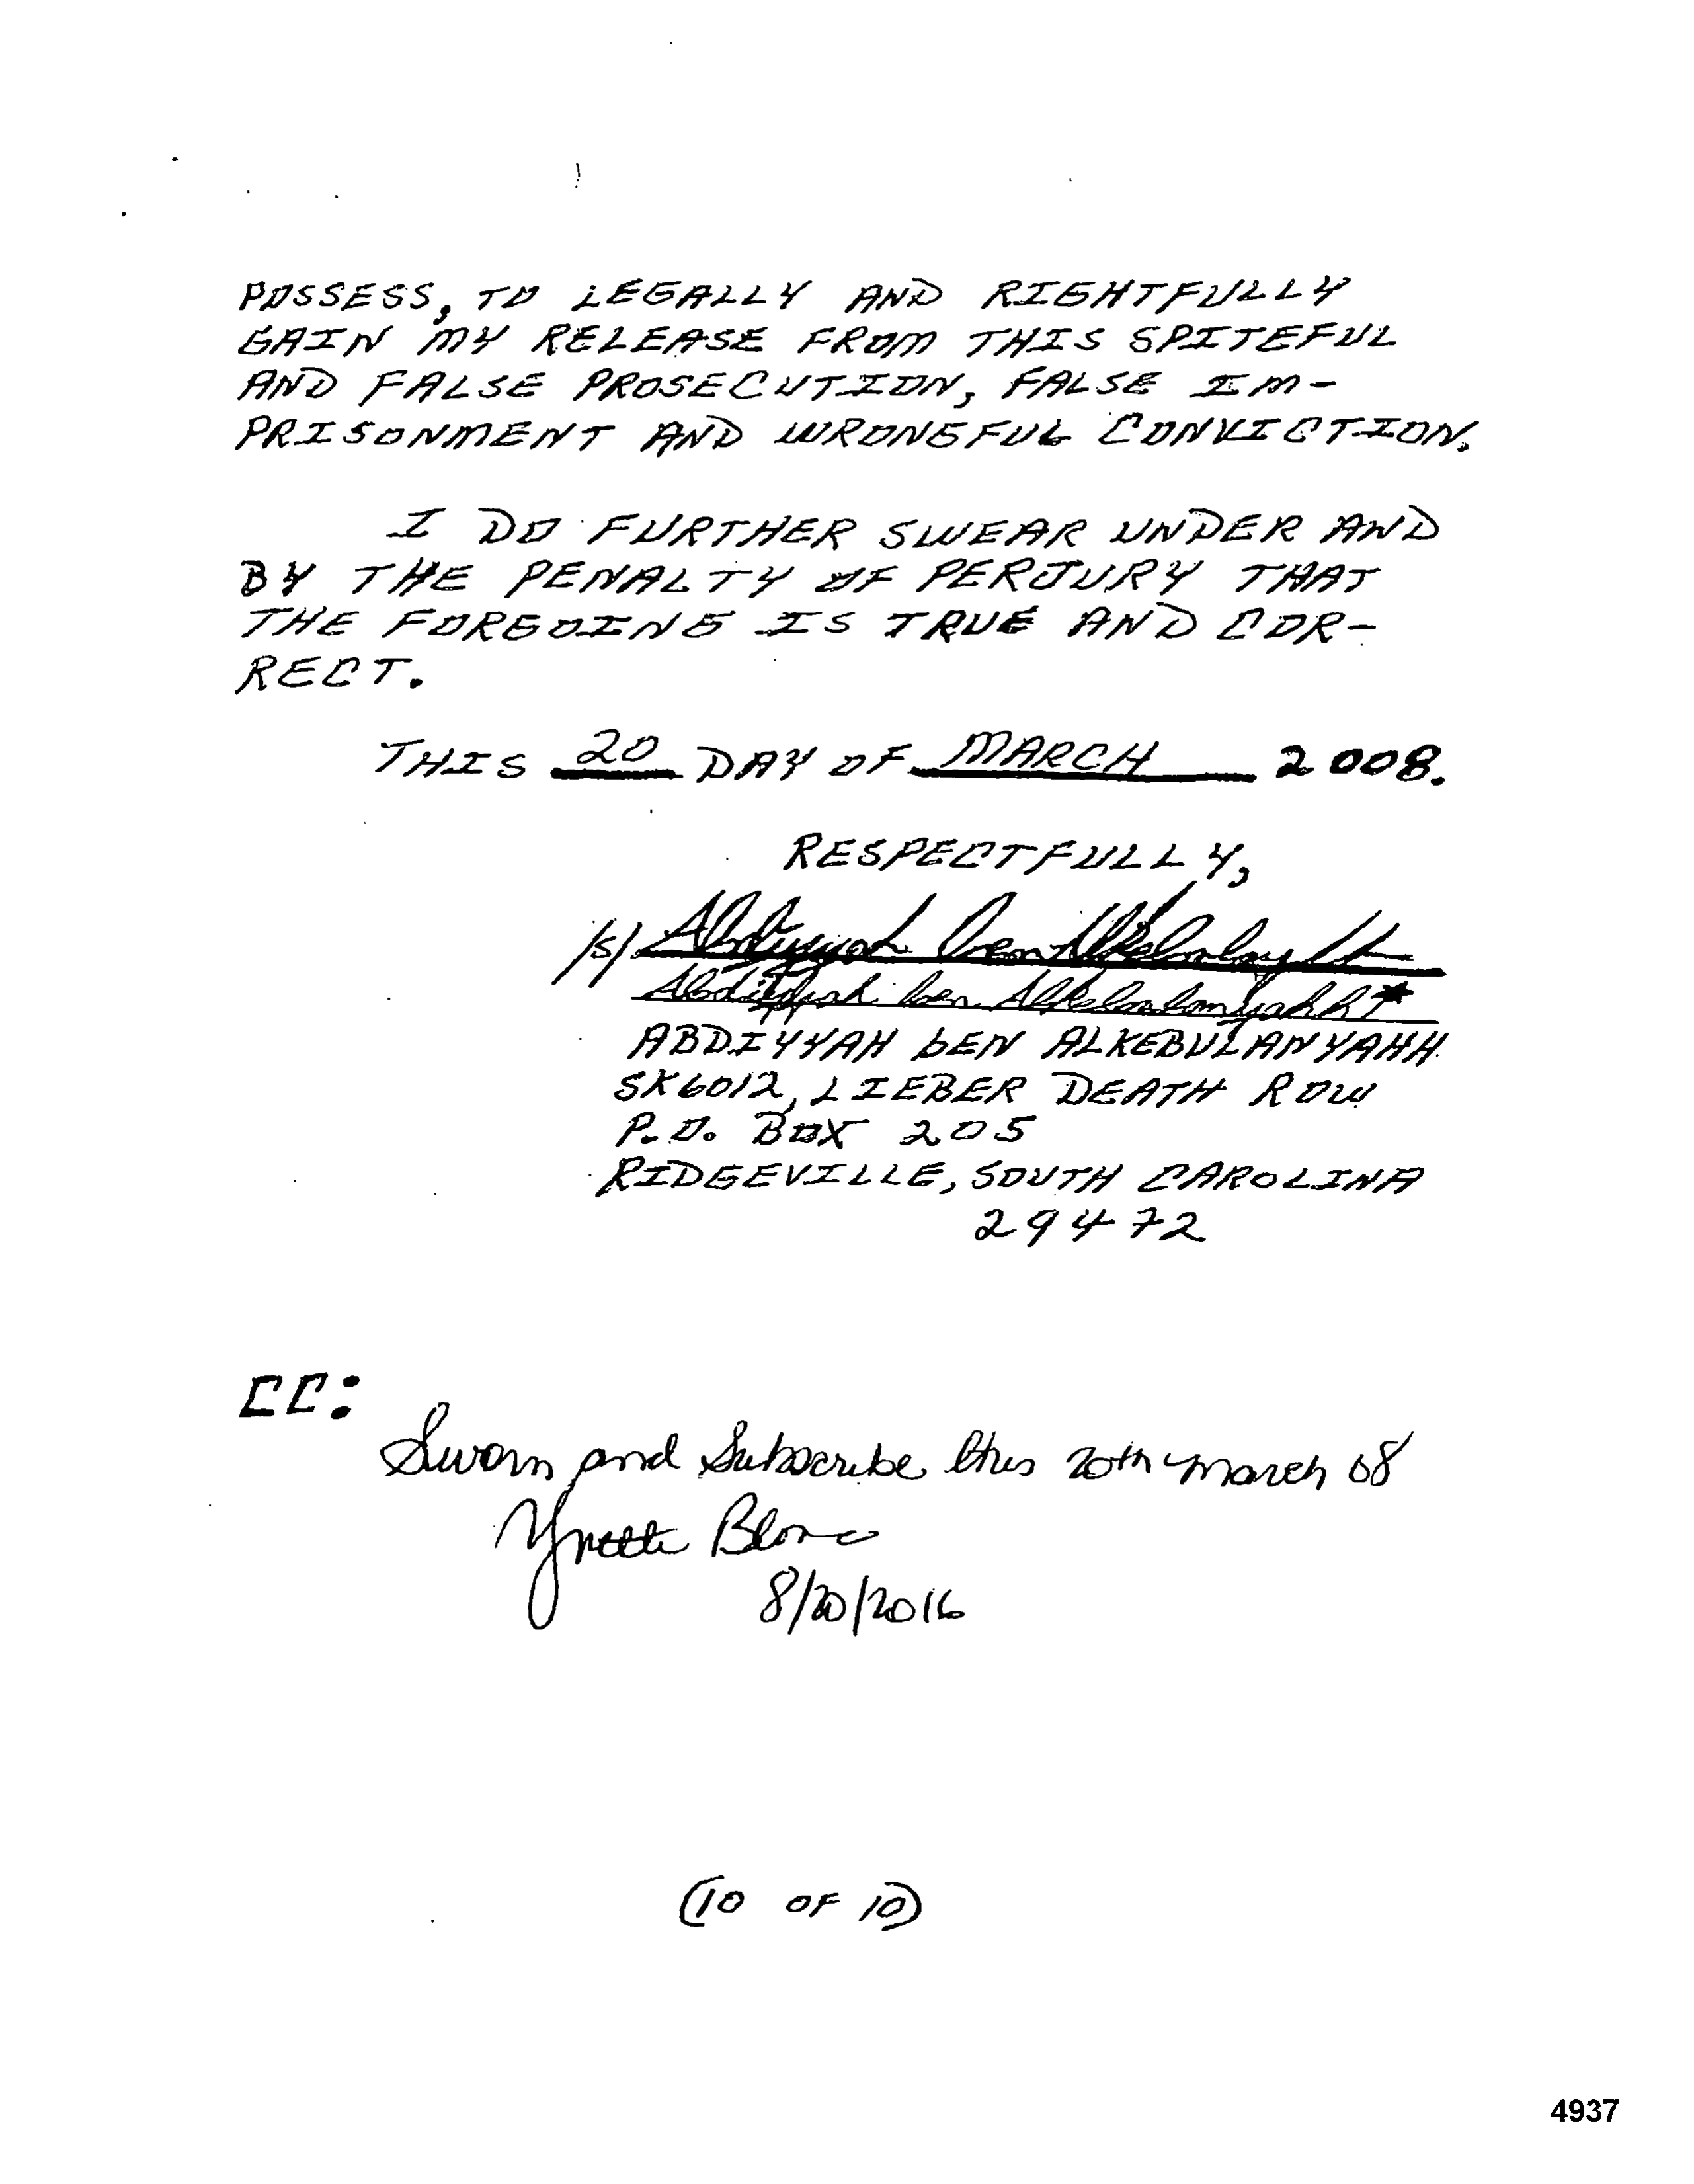 POSSESS, TO LEGALLY AND RIGHTFULLY
GAIN MY RELEASE FROM THIS SPITEFUL
AND FALSE PROSECUTION, FALSE IM-
PRISONMENT AND WRONGFUL CONVICTION.
I DO FURTHER SWEAR UNDER AND
BY THE PENALTY OF PERJURY THAT
THE FOREGOING IS TRUE AND COR-
RECT.
THIS 20 DAY OF MARCH 2008.
RESPECTFULLY,
/s/ Abdiyyah ben Alkebulanyahh
Abdiyyah ben Alkebulanyahh
ABDIYYAH bEN ALKEBULANYAHH
SK6012, LIEBER DEATH ROW
P.O. BOX 205
RIDGEEVILLE, SOUTH CAROLINA
29472
CC:
Sworn and Subscribe this 20th March 08
Yvette
8/20/2016
(10 OF 10)
4937